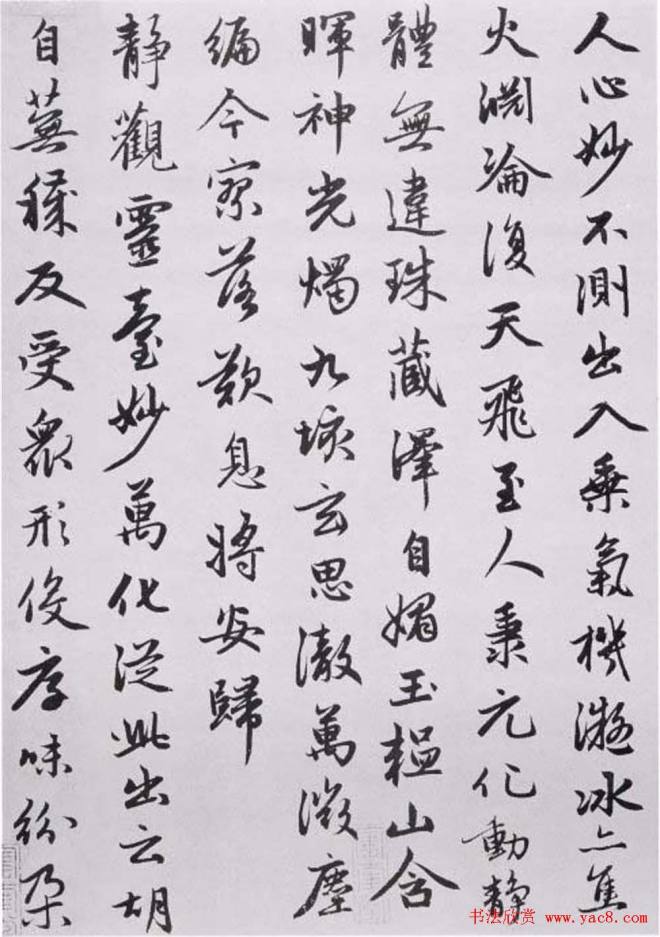 人心妙不測出入乗氣機凝冰亦焦
火淵淪復天飛至人秉元化動静
體無違珠藏澤自媚玉韞山含
暉神光燭九垓玄思澈萬微塵
編今寥落歎息將安歸
静觀靈臺妙萬化從此出云胡
自蕪穢反受衆形役厚味紛朶
书法欣赏 www.yac8.com